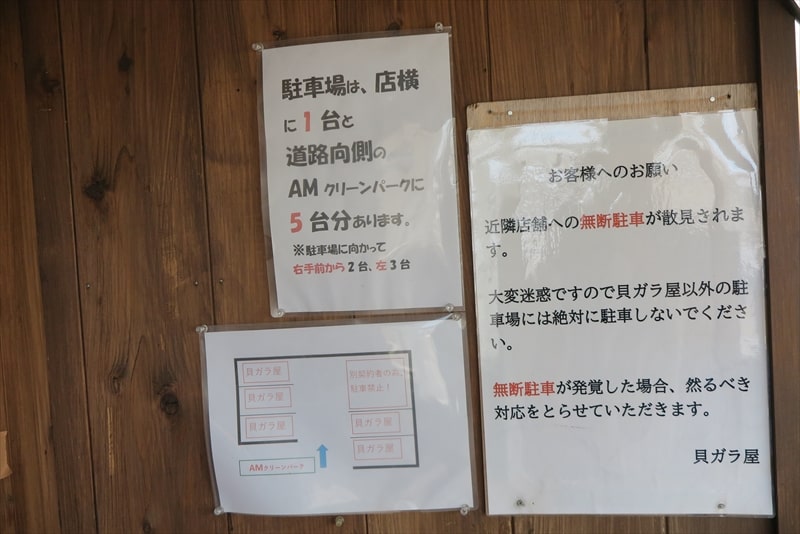 駐車場は、店横
に1台と
道路向側の
AMクリーンパークに
5台分あります。
※駐車場に向かって
右手前から2台、左3台
貝ガラ屋
貝ガラ屋
貝ガラ屋
別契約者の為、
駐車禁止！
貝ガラ屋
貝ガラ屋
AMクリーンパーク
お客様へのお願い
近隣店舗への無断駐車が散見されま
す。
大変迷惑ですので貝ガラ屋以外の駐
車場には絶対に駐車しないでくださ
い。
無断駐車が発覚した場合、然るべき
対応をとらせていただきます。
貝ガラ屋